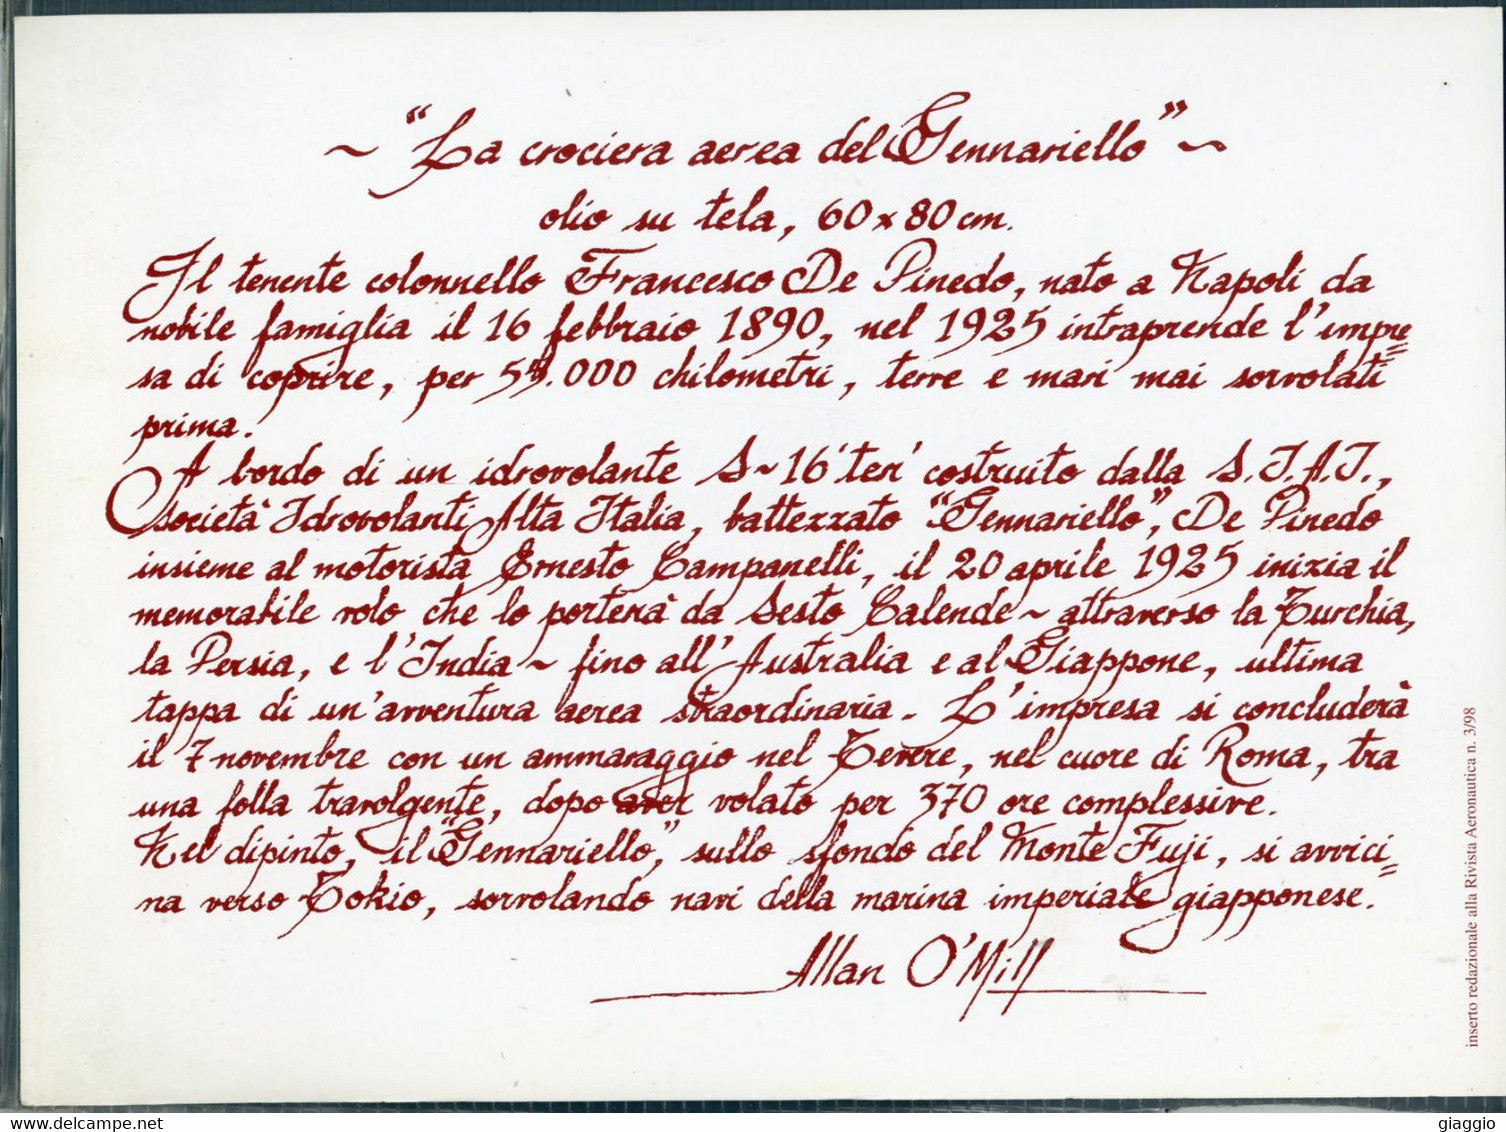 ~ "La crociera aerea del Gennariello" ~
olio su tela, 60 x 80 cm.
Il tenente colonnello Francesco De Pinedo, nato a Napoli da
nobile famiglia il 16 febbraio 1890, nel 1925 intraprende l'impre=
sa di coprire, per 55.000 chilometri, terre e mari mai sorvolati
prima.
A bordo di un idrovolante S~16 'ter' costruito dalla S.I.A.I.,
Società Idrovolanti Alta Italia, battezzato "Gennariello", De Pinedo
insieme al motorista Ernesto Campanelli, il 20 aprile 1925 inizia il
memorabile volo che lo porterà da Sesto Calende ~ attraverso la Turchia,
la Persia, e l'India ~ fino all'Australia e al Giappone, ultima
tappa di un'avventura aerea straordinaria. L'impresa si concluderà
il 7 novembre con un ammaraggio nel Tevere, nel cuore di Roma, tra
una folla travolgente, dopo aver volato per 370 ore complessive.
Nel dipinto, il "Gennariello", sullo sfondo del Monte Fuji, si avvici=
na verso Tokio, sorvolando navi della marina imperiale giapponese.
Allan O'Mill
inserto redazionale alla Rivista Aeronautica n. 3/98
www.delcampe.net
giaggio